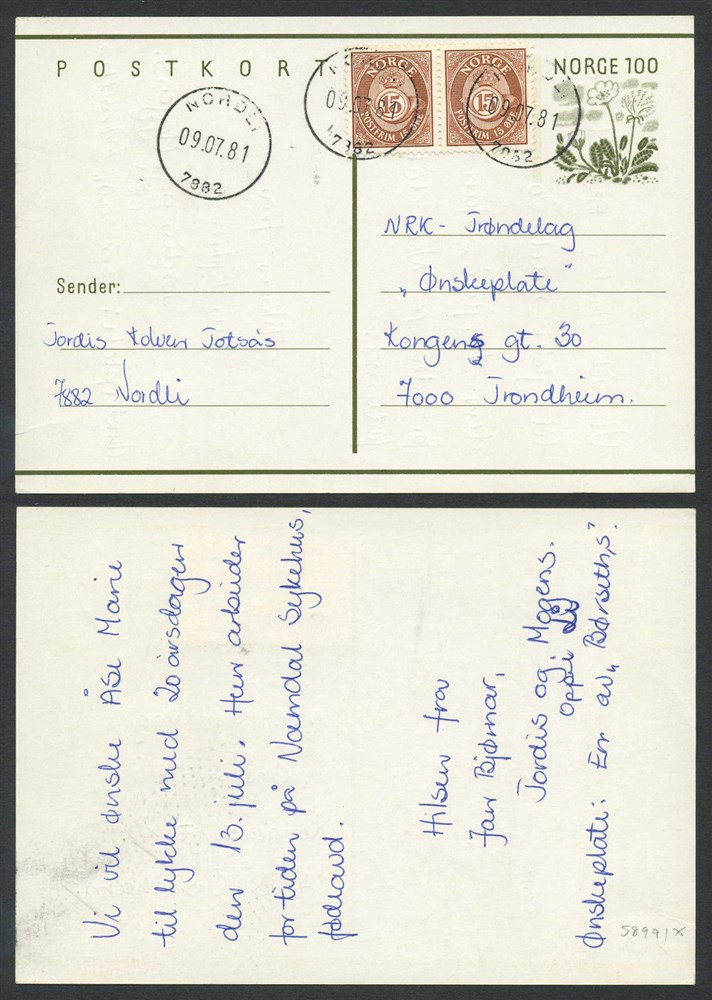 POSTKORT
NORDLI
09.07.81
7882
NORGE
15
POSTFRIM. 15 ØRE
09.07.81
7882
NORGE
15
POSTFRIM. 15 ØRE
09.07.81
7882
NORGE 100
NRK - Trøndelag
„Ønskeplate"
Kongens gt. 30
7000 Trondheim.
Sender:
Jordis Kolven Totsås
7882 Nordli
Vi vil ønske Åse Marie
til lykke med 20 årsdagen
den 13. juli. Hun arbeider
for tiden på Namdal Sykehus,
fødeavd.
Hilsen fra
Jan Bjørnar,
Jordis og Mogens.
oppi
Ønskeplate: En av „Børseth,s".
58991x